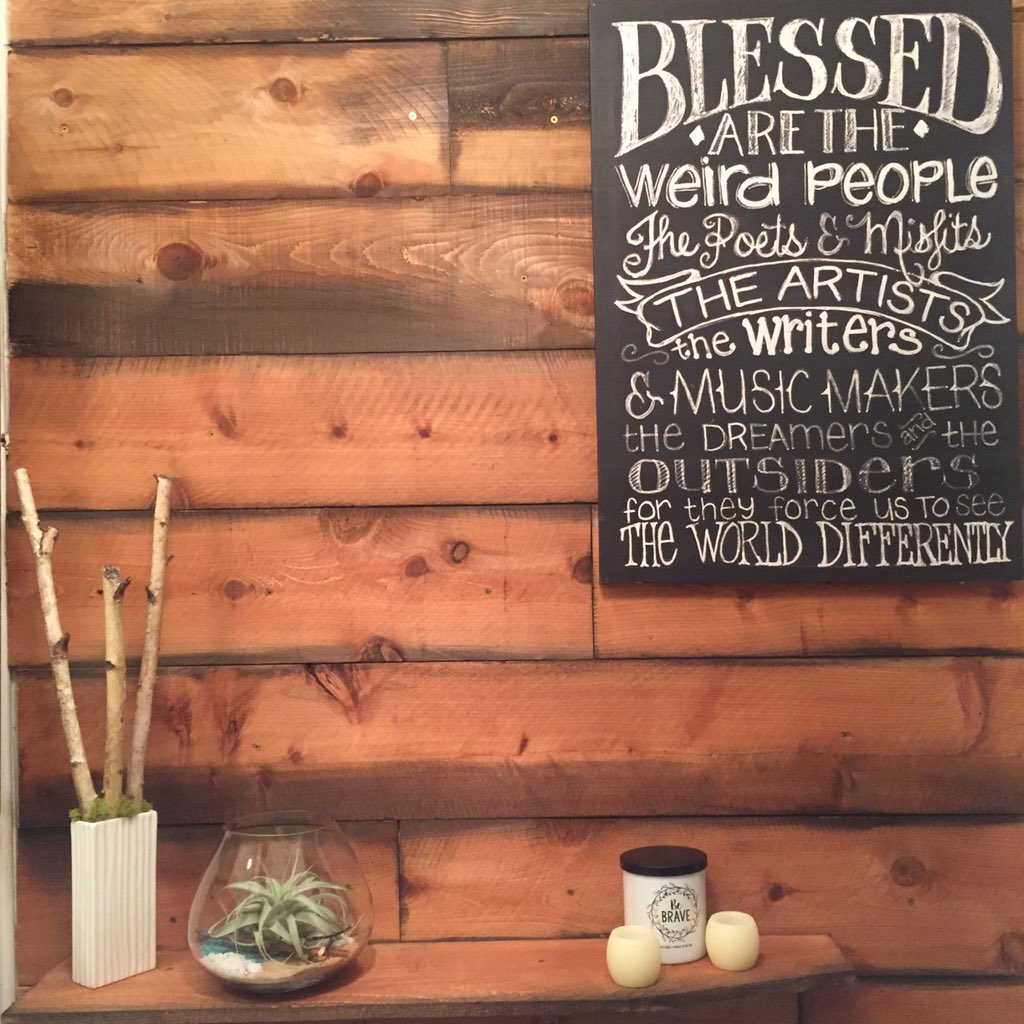 BLESSED
ARE THE
weird PEOPLE
The Poets & Misfits
THE ARTISTS
the writers
& MUSIC MAKERS
the DREAMERS and the
OUTSIDERS
for they force us to see
THE WORLD DIFFERENTLY
Be
BRAVE